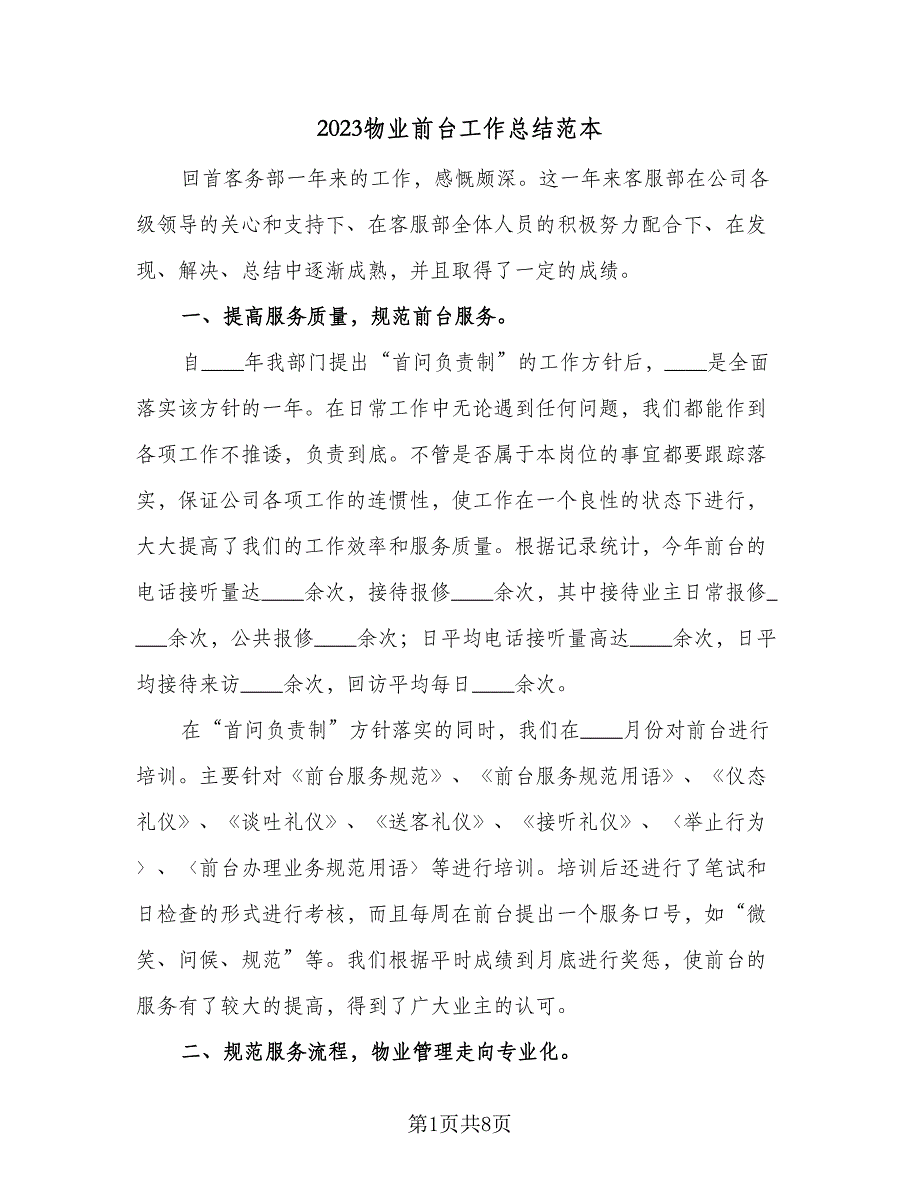 2023物业前台工作总结范本
回首客务部一年来的工作，感慨颇深。这一年来客服部在公司各
级领导的关心和支持下、在客服部全体人员的积极努力配合下、在发
现、解决、总结中逐渐成熟，并且取得了一定的成绩。
一、提高服务质量，规范前台服务。
自____年我部门提出“首问负责制”的工作方针后，____是全面
落实该方针的一年。在日常工作中无论遇到任何问题，我们都能作到
各项工作不推诿，负责到底。不管是否属于本岗位的事宜都要跟踪落
实，保证公司各项工作的连惯性，使工作在一个良性的状态下进行，
大大提高了我们的工作效率和服务质量。根据记录统计，今年前台的
电话接听量达____余次，接待报修____余次，其中接待业主日常报修_
___余次，公共报修____余次；日平均电话接听量高达____余次，日平
均接待来访____余次，回访平均每日____余次。
在“首问负责制”方针落实的同时，我们在____月份对前台进行
培训。主要针对《前台服务规范》、《前台服务规范用语》、《仪态
礼仪》、《谈吐礼仪》、《送客礼仪》、《接听礼仪》、〈举止行为
〉、〈前台办理业务规范用语〉等进行培训。培训后还进行了笔试和
日检查的形式进行考核，而且每周在前台提出一个服务口号，如“微
笑、问候、规范”等。我们根据平时成绩到月底进行奖惩，使前台的
服务有了较大的提高，得到了广大业主的认可。
二、规范服务流程，物业管理走向专业化。
第1页共8页